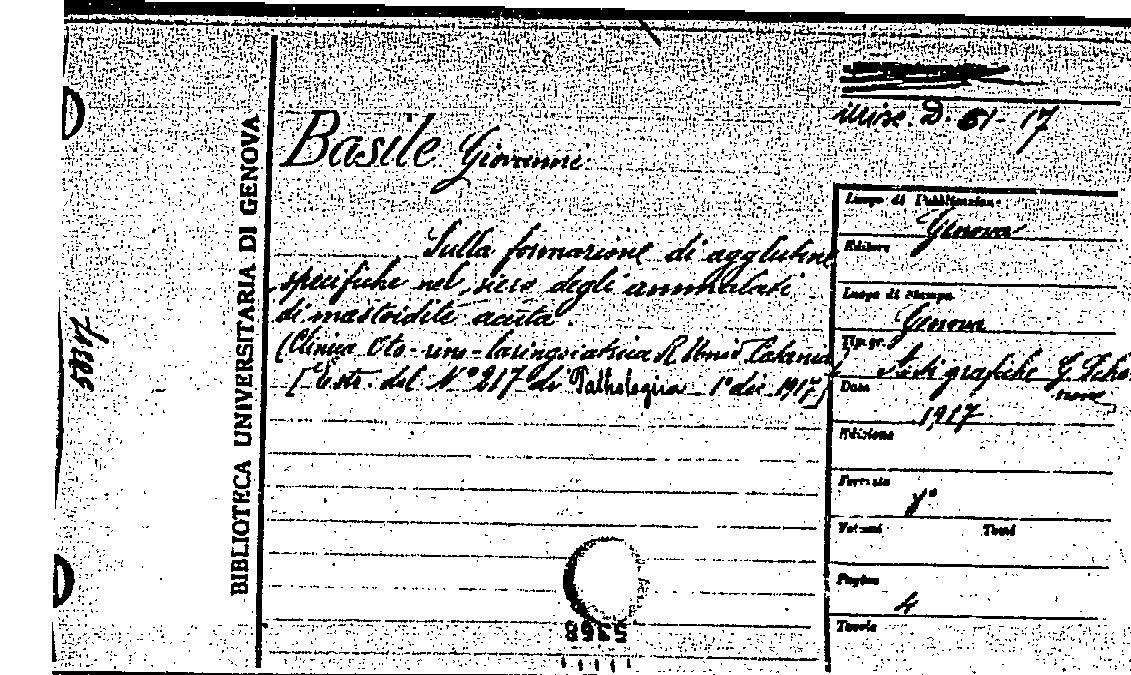 BIBLIOTECA UNIVERSITARIA DI GENOVA
Misc. D. 61-17
Basile Giovanni
Sulla formazione di agglutine
specifiche nel siero degli ammalati
di mastoidite acuta.
(Clinica Oto-rino-laringoiatrica R. Univ. Catania)
[Estr. del N° 217 di Pathologica 1° dic. 1917.]
Luogo di Pubblicazione
Genova
Editore
Luogo di Stampa
Genova
Tip. gr.
Stab. grafiche G. Scho
Data
1917
Edizione
Formato
8°
Volumi Tomi
Pagine
4
Tavole
5368